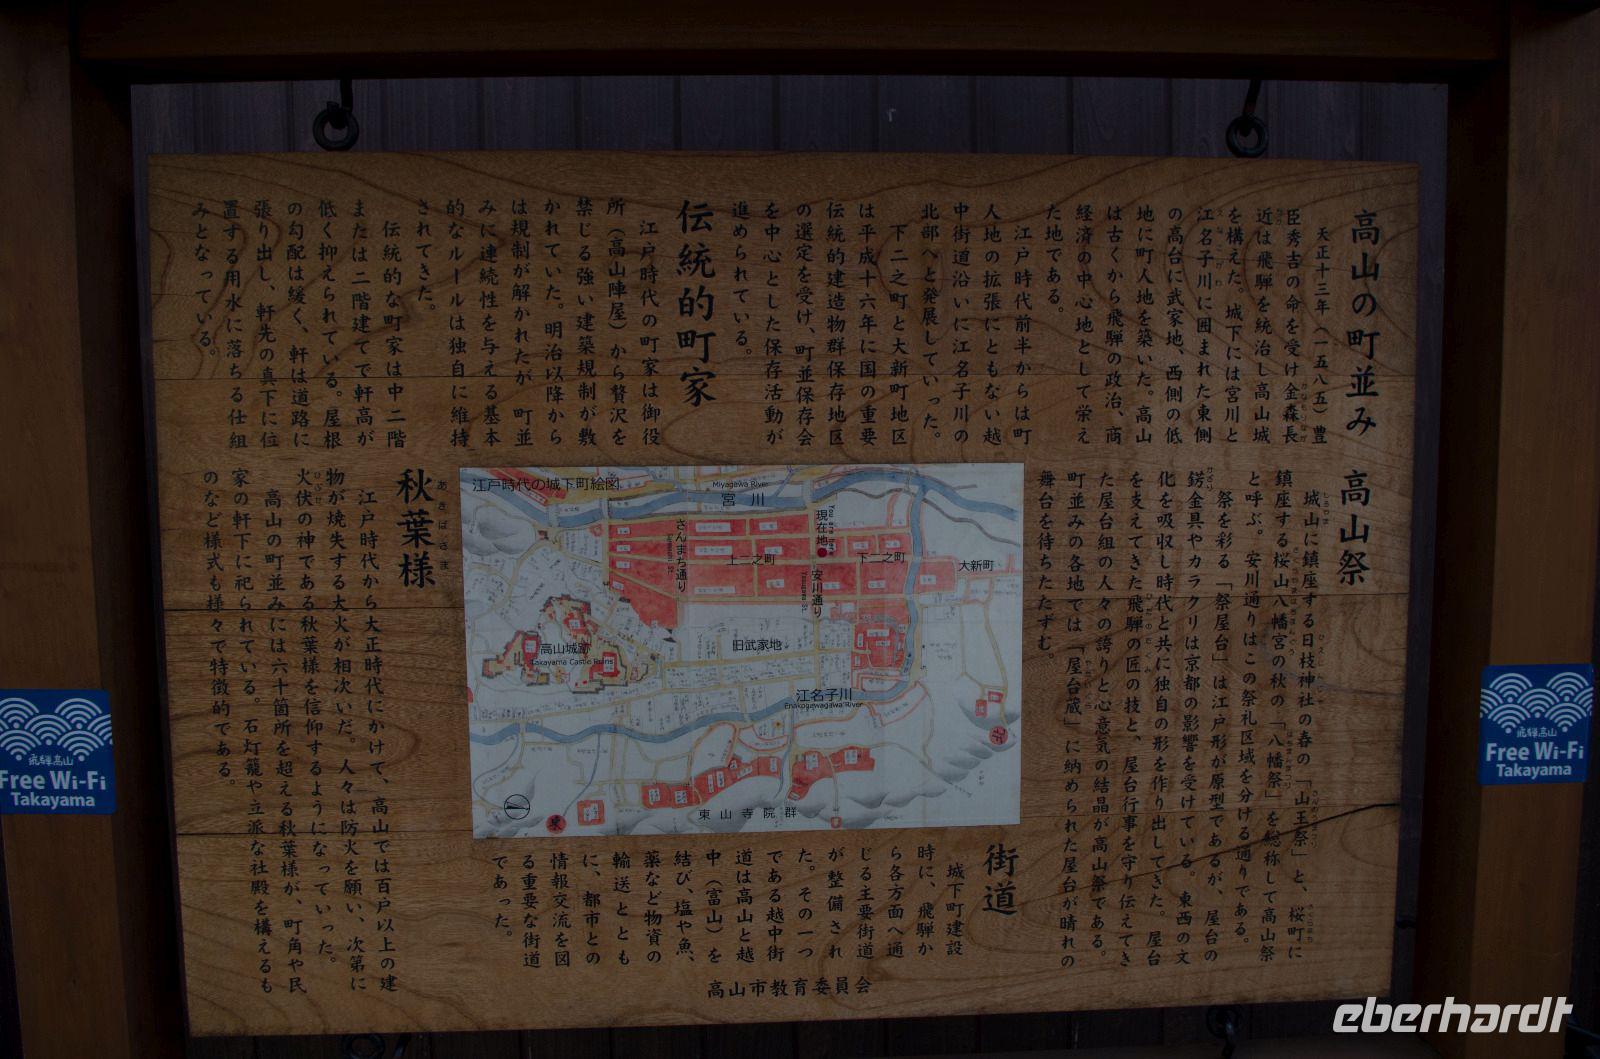 高山の町並み
天正十三年(一五八五)豊
臣秀吉の命を受け金森長
近は飛騨を統治し高山城
を構えた。城下には宮川と
江名子川に囲まれた東側
の高台に武家地、西側の低
地に町人地を築いた。高山
は古くから飛騨の政治、商
経済の中心地として栄え
た地である。
江戸時代前半からは町
人地の拡張にともない越
中街道沿いに江名子川の
北部へと発展していった。
下二之町と大新町地区
は平成十六年に国の重要
伝統的建造物群保存地区
の選定を受け、町並保存会
を中心とした保存活動が
進められている。
伝統的町家
江戸時代の町家は御役
所(高山陣屋)から贅沢を
禁じる強い建築規制が敷
かれていた。明治以降から
は規制が解かれたが 町並
みに連続性を与える基本
的なルールは独自に維持
されてきた。
伝統的な町家は中二階
または二階建てで軒高が
低く抑えられている。屋根
の勾配は緩く、軒は道路に
張り出し、軒先の真下に位
置する用水に落ちる仕組
みとなっている。
高山祭
城山に鎮座する日枝神社の春の「山王祭」と、桜町に
鎮座する桜山八幡宮の秋の「八幡祭」を総称して高山祭
と呼ぶ。安川通りはこの祭礼区域を分ける通りである。
祭を彩る「祭屋台」は江戸形が原型であるが、屋台の
錺金具やカラクリは京都の影響を受けている。東西の文
化を吸収し時代と共に独自の形を作り出してきた。屋台
を支えてきた飛騨の匠の技と、屋台行事を守り伝えてき
た屋台組の人々の誇りと心意気の結晶が高山祭である。
町並みの各地では「屋台蔵」に納められた屋台が晴れの
舞台を待ちたたずむ。
街道
城下町建設
時に、飛騨か
ら各方面へ通
じる主要街道
が整備され
た。その一つ
である越中街
道は高山と越
中(富山)を
結び、塩や魚、
薬など物資の
輸送ととも
に、都市との
情報交流を図
る重要な街道
であった。
高山市教育委員会
秋葉様
あきばさま
江戸時代から大正時代にかけて、高山では百戸以上の建
物が焼失する大火が相次いだ。人々は防火を願い、次第に
火伏の神である秋葉様を信仰するようになっていった。
高山の町並みには六十箇所を超える秋葉様が、町角や民
家の軒下に祀られている。石灯籠や立派な社殿を構えるも
のなど様式も様々で特徴的である。
江戸時代の城下町絵図
Miyagawa River
宮川
You are here
現在地
さんまち通り
上二之町
下二之町
大新町
安川通り
Yasugawa St.
高山城跡
Takayama Castle Ruins
旧武家地
江名子川
Enakogawagawa River
東山寺院群
飛騨高山
Free Wi-Fi
Takayama
飛騨高山
Free Wi-Fi
Takayama
eberhardt